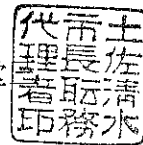 土佐清水
市長職務
代理者印